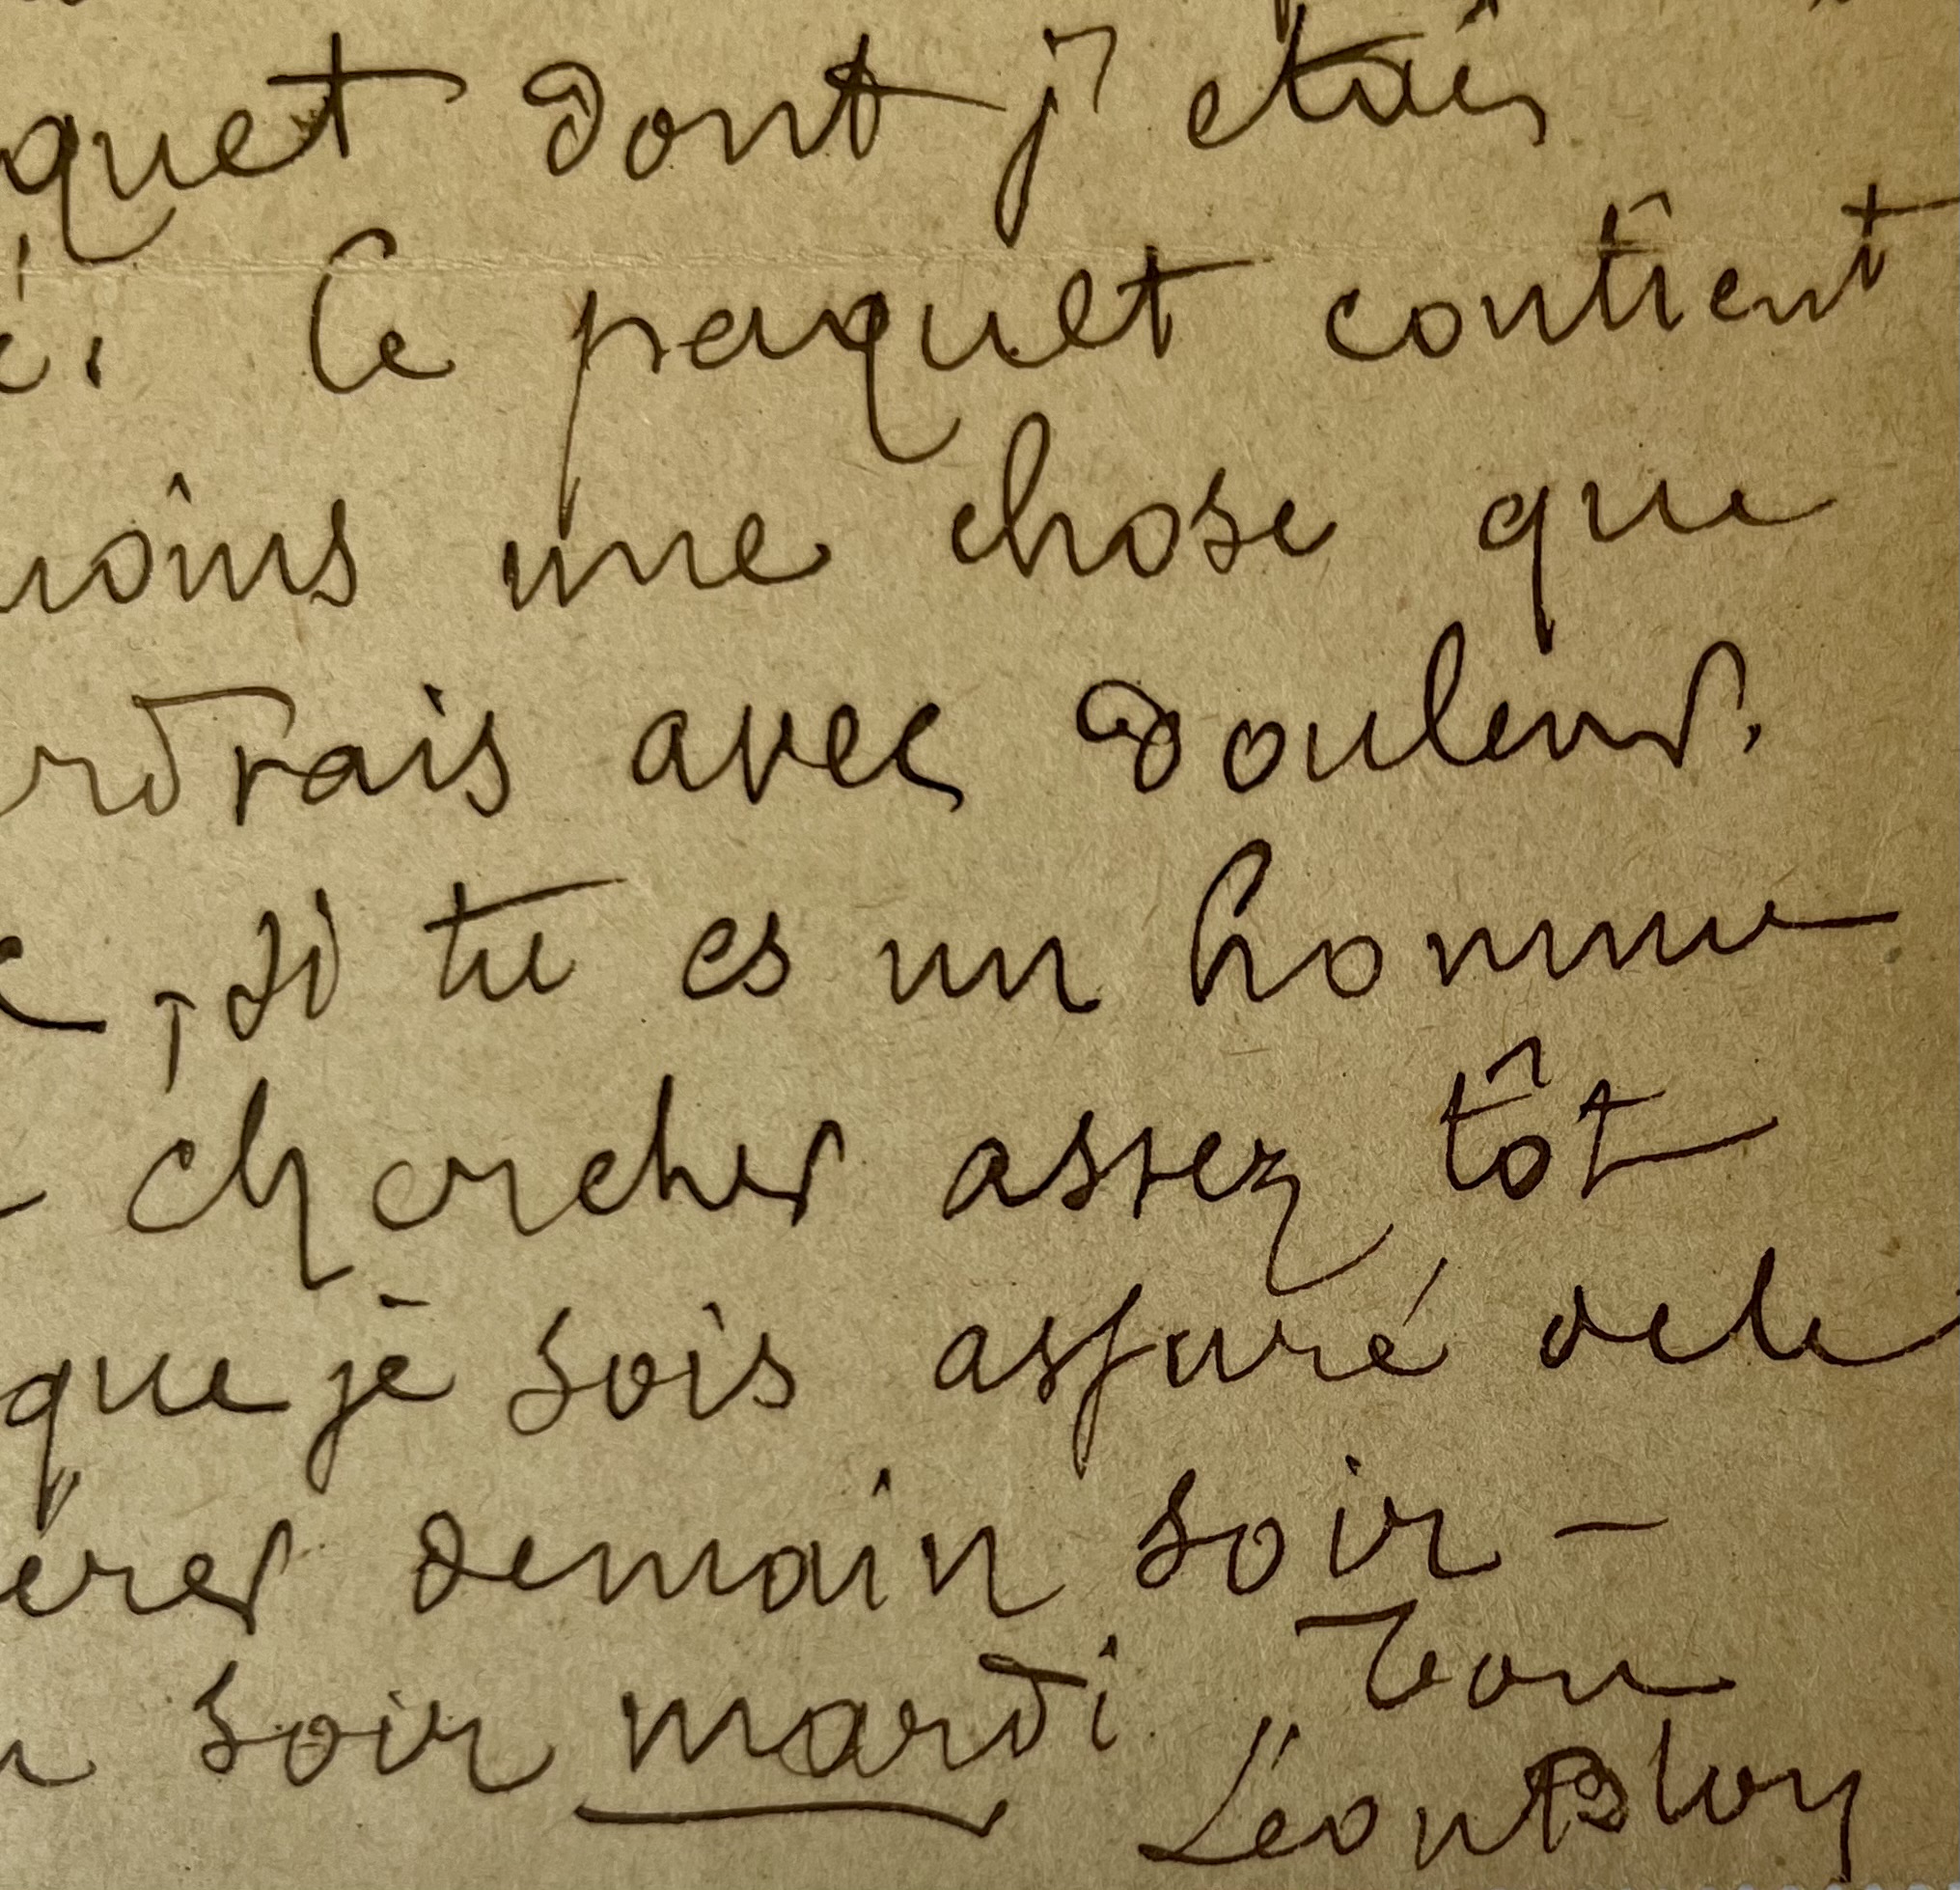 quet dont j'étais
é. Ce paquet contient
moins une chose que
rdrais avec douleur.
, si tu es un homme
chercher assez tôt
que je sois assuré de le
érer demain soir –
soir mardi. Ton
Léon Bloy